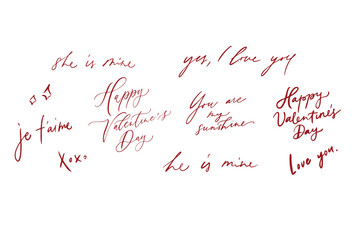 she is mine
yes, I love you
je t'aime
Happy
Valentine's
Day
You are
my
sunshine
Happy
Valentine's
Day
xoxo
he is mine
Love you.